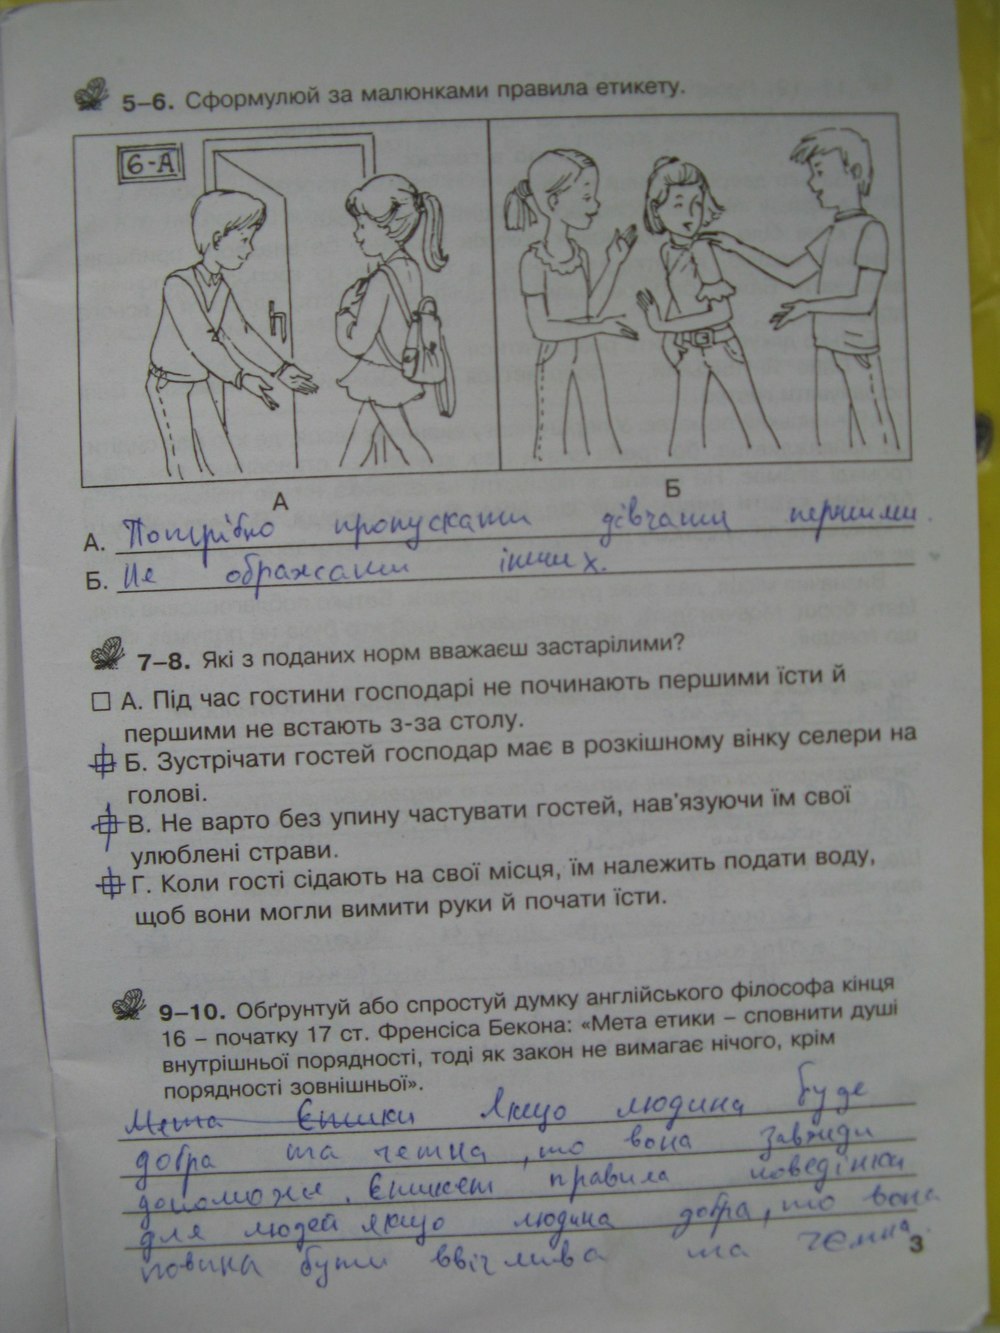 5–6. Сформулюй за малюнками правила етикету.
6-А
А
Б
А. Потрібно пропускати дівчати першими.
Б. Не ображати інших.
7–8. Які з поданих норм вважаєш застарілими?
А. Під час гостини господарі не починають першими їсти й
першими не встають з-за столу.
Б. Зустрічати гостей господар має в розкішному вінку селери на
голові.
В. Не варто без упину частувати гостей, нав'язуючи їм свої
улюблені страви.
Г. Коли гості сідають на свої місця, їм належить подати воду,
щоб вони могли вимити руки й почати їсти.
9–10. Обґрунтуй або спростуй думку англійського філософа кінця
16 – початку 17 ст. Френсіса Бекона: «Мета етики – сповнити душі
внутрішньої порядності, тоді як закон не вимагає нічого, крім
порядності зовнішньої».
Мета Етики Якщо людина буде
добра та чемна, то вона завжди
допоможе. Етикет правила поведінки
для людей якщо людина добра, то вона
повина бути ввічлива та чемна.
3